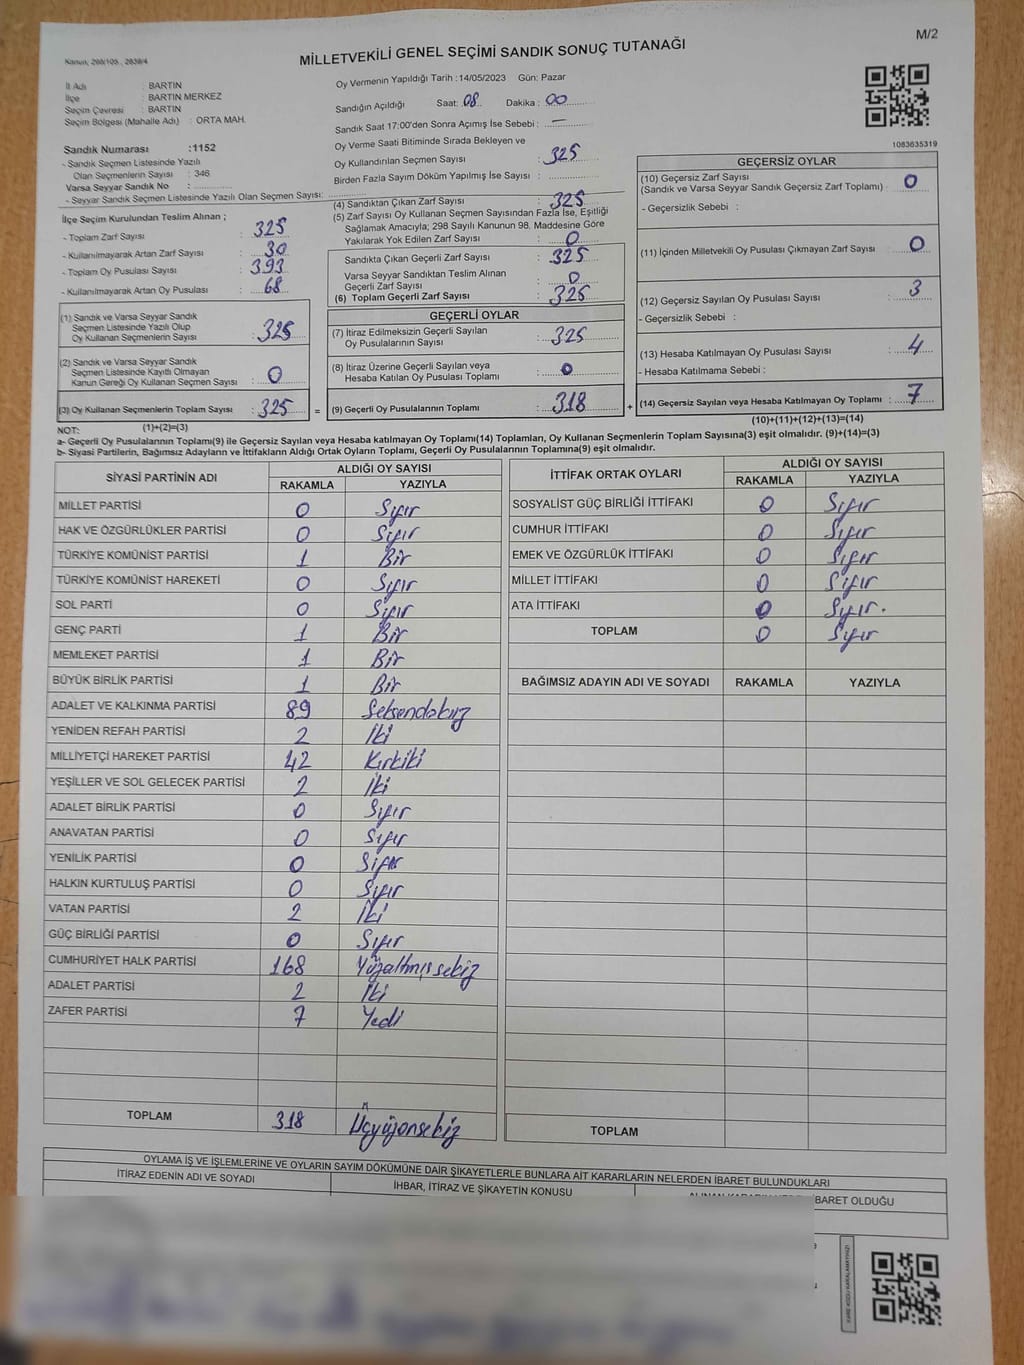 M/2
Kanun, 298/105 , 2839/4
MİLLETVEKİLİ GENEL SEÇİMİ SANDIK SONUÇ TUTANAĞI
İl Adı : BARTIN
İlçe : BARTIN MERKEZ
Seçim Çevresi : BARTIN
Seçim Bölgesi (Mahalle Adı) : ORTA MAH.
Sandık Numarası :1152
- Sandık Seçmen Listesinde Yazılı
Olan Seçmenlerin Sayısı : 346
Varsa Seyyar Sandık No :
- Seyyar Sandık Seçmen Listesinde Yazılı Olan Seçmen Sayısı:
İlçe Seçim Kurulundan Teslim Alınan ;
- Toplam Zarf Sayısı : 325
- Kullanılmayarak Artan Zarf Sayısı : 30
- Toplam Oy Pusulası Sayısı : 393
- Kullanılmayarak Artan Oy Pusulası : 68
(1) Sandık ve Varsa Seyyar Sandık
Seçmen Listesinde Yazılı Olup
Oy Kullanan Seçmenlerin Sayısı : 325
(2) Sandık ve Varsa Seyyar Sandık
Seçmen Listesinde Kayıtlı Olmayan
Kanun Gereği Oy Kullanan Seçmen Sayısı : 0
(3) Oy Kullanan Seçmenlerin Toplam Sayısı : 325 =
Oy Vermenin Yapıldığı Tarih :14/05/2023 Gün: Pazar
Sandığın Açıldığı Saat: 08 Dakika : 00
Sandık Saat 17:00'den Sonra Açımış İse Sebebi : —
Oy Verme Saati Bitiminde Sırada Bekleyen ve
Oy Kullandırılan Seçmen Sayısı : 325
Birden Fazla Sayım Döküm Yapılmış İse Sayısı :
(4) Sandıktan Çıkan Zarf Sayısı : 325
(5) Zarf Sayısı Oy Kullanan Seçmen Sayısından Fazla İse, Eşitliği
Sağlamak Amacıyla; 298 Sayılı Kanunun 98. Maddesine Göre
Yakılarak Yok Edilen Zarf Sayısı : 0
Sandıkta Çıkan Geçerli Zarf Sayısı : 325
Varsa Seyyar Sandıktan Teslim Alınan
Geçerli Zarf Sayısı : 0
(6) Toplam Geçerli Zarf Sayısı : 325
GEÇERLİ OYLAR
(7) İtiraz Edilmeksizin Geçerli Sayılan
Oy Pusulalarının Sayısı : 325
(8) İtiraz Üzerine Geçerli Sayılan veya
Hesaba Katılan Oy Pusulası Toplamı : 0
(9) Geçerli Oy Pusulalarının Toplamı : 318 +
1083635319
GEÇERSİZ OYLAR
(10) Geçersiz Zarf Sayısı
(Sandık ve Varsa Seyyar Sandık Geçersiz Zarf Toplamı) : 0
- Geçersizlik Sebebi :
(11) İçinden Milletvekili Oy Pusulası Çıkmayan Zarf Sayısı : 0
(12) Geçersiz Sayılan Oy Pusulası Sayısı : 3
- Geçersizlik Sebebi :
(13) Hesaba Katılmayan Oy Pusulası Sayısı : 4
- Hesaba Katılmama Sebebi :
(14) Geçersiz Sayılan veya Hesaba Katılmayan Oy Toplamı : 7
NOT: (1)+(2)=(3) (10)+(11)+(12)+(13)=(14)
a- Geçerli Oy Pusulalarının Toplamı(9) ile Geçersiz Sayılan veya Hesaba katılmayan Oy Toplamı(14) Toplamları, Oy Kullanan Seçmenlerin Toplam Sayısına(3) eşit olmalıdır. (9)+(14)=(3)
b- Siyasi Partilerin, Bağımsız Adayların ve İttifakların Aldığı Ortak Oyların Toplamı, Geçerli Oy Pusulalarının Toplamına(9) eşit olmalıdır.
SİYASİ PARTİNİN ADI ALDIĞI OY SAYISI
RAKAMLA YAZIYLA
MİLLET PARTİSİ 0 Sıfır
HAK VE ÖZGÜRLÜKLER PARTİSİ 0 Sıfır
TÜRKİYE KOMÜNİST PARTİSİ 1 Bir
TÜRKİYE KOMÜNİST HAREKETİ 0 Sıfır
SOL PARTİ 0 Sıfır
GENÇ PARTİ 1 Bir
MEMLEKET PARTİSİ 1 Bir
BÜYÜK BİRLİK PARTİSİ 1 Bir
ADALET VE KALKINMA PARTİSİ 89 Seksendokuz
YENİDEN REFAH PARTİSİ 2 İki
MİLLİYETÇİ HAREKET PARTİSİ 42 Kırkiki
YEŞİLLER VE SOL GELECEK PARTİSİ 2 İki
ADALET BİRLİK PARTİSİ 0 Sıfır
ANAVATAN PARTİSİ 0 Sıfır
YENİLİK PARTİSİ 0 Sıfır
HALKIN KURTULUŞ PARTİSİ 0 Sıfır
VATAN PARTİSİ 2 İki
GÜÇ BİRLİĞİ PARTİSİ 0 Sıfır
CUMHURİYET HALK PARTİSİ 168 Yüzaltmışsekiz
ADALET PARTİSİ 2 İki
ZAFER PARTİSİ 7 Yedi
TOPLAM 318 Üçyüzonsekiz
İTTİFAK ORTAK OYLARI ALDIĞI OY SAYISI
RAKAMLA YAZIYLA
SOSYALİST GÜÇ BİRLİĞİ İTTİFAKI 0 Sıfır
CUMHUR İTTİFAKI 0 Sıfır
EMEK VE ÖZGÜRLÜK İTTİFAKI 0 Sıfır
MİLLET İTTİFAKI 0 Sıfır
ATA İTTİFAKI 0 Sıfır.
TOPLAM 0 Sıfır
BAĞIMSIZ ADAYIN ADI VE SOYADI RAKAMLA YAZIYLA
TOPLAM
OYLAMA İŞ VE İŞLEMLERİNE VE OYLARIN SAYIM DÖKÜMÜNE DAİR ŞİKAYETLERLE BUNLARA AİT KARARLARIN NELERDEN İBARET BULUNDUKLARI
İTİRAZ EDENİN ADI VE SOYADI İHBAR, İTİRAZ VE ŞİKAYETİN KONUSU İBARET OLDUĞU
KARE KODU KARALAMAYINIZ!